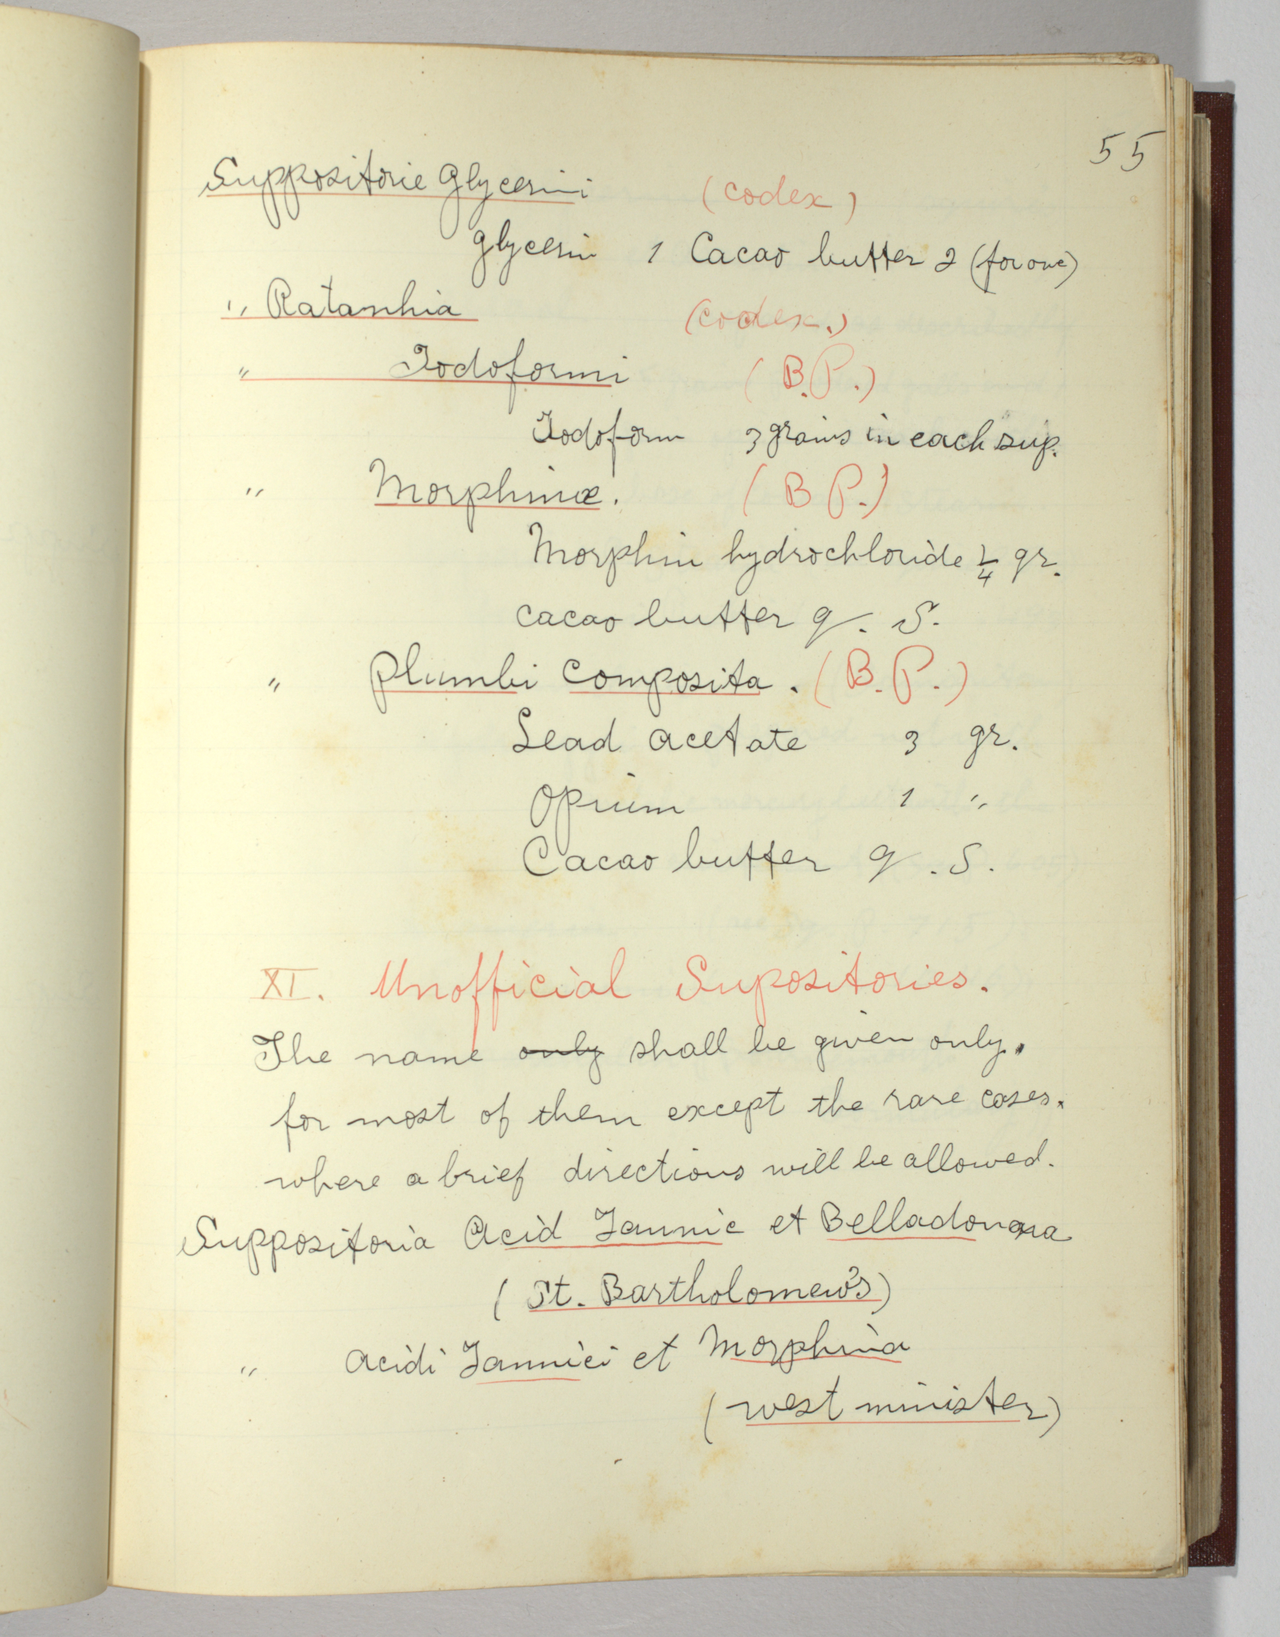 55
Suppositorie Glycerini (codex)
Glycerin 1 Cacao butter 2 (for one)
" Ratanhia (codex.)
" Iodoformi (B.P.)
Iodoform 3 grains in each sup.
" Morphinæ. (B P.)
Morphin hydrochloride 1/4 gr.
cacao butter q. S.
" Plumbi Composita. (B.P.)
Lead acetate 3 gr.
Opium 1 "
Cacao butter q. S.
XI. Unofficial Supositories.
The name only shall be given only,
for most of them except the rare cases.
where a brief directions will be allowed.
Suppositoria Acid Tannic et Belladonna
(St. Bartholomew's)
" acidi Tannici et Morphina
(west minister)